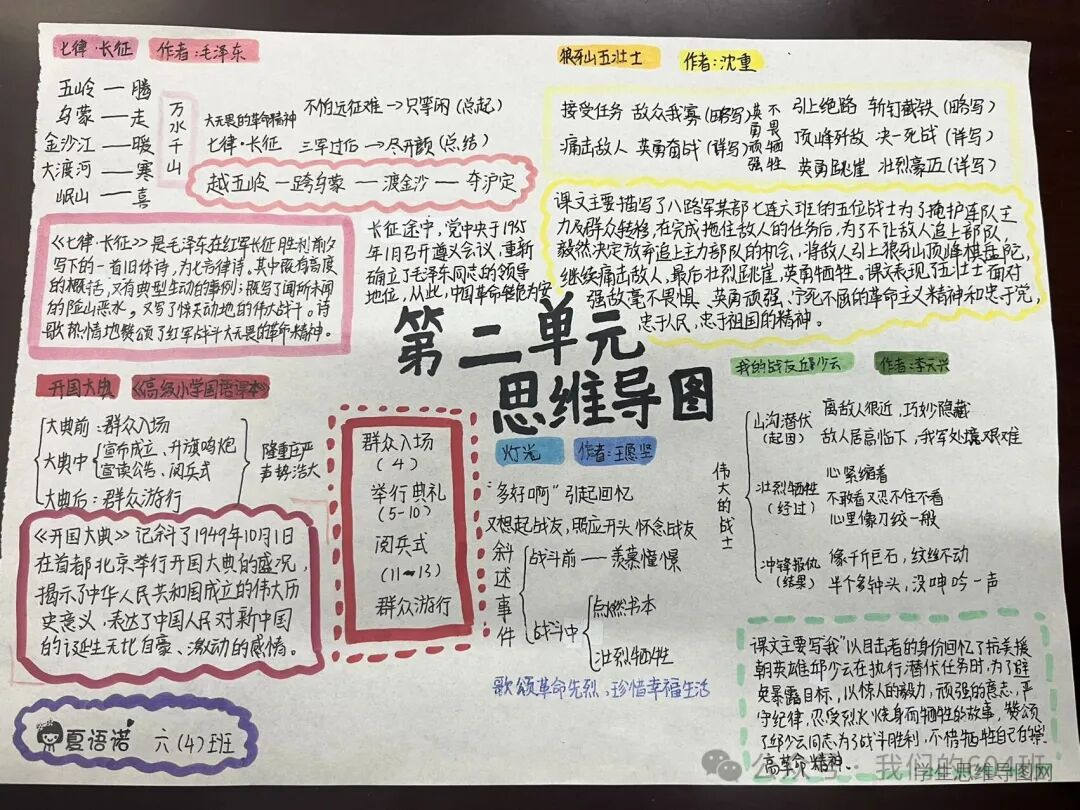 七律·长征 作者:毛泽东
五岭—腾
乌蒙—走
金沙江—暖
大渡河—寒
岷山—喜
万水千山
大无畏的革命精神
不怕远征难→只等闲(总起)
七律·长征 三军过后→尽开颜(总结)
越五岭—跨乌蒙—渡金沙—夺泸定
《七律·长征》是毛泽东在红军长征胜利前夕
写下的一首旧体诗,为七言律诗。其中既有高度
的概括,又有典型生动的事例;既写了闻所未闻
的险山恶水,又写了惊天动地的伟大战斗。诗
歌热情地赞颂了红军战斗大无畏的革命精神。
长征途中,党中央于1935
年1月召开遵义会议,重新
确立了毛泽东同志的领导
地位,从此,中国革命转危为安
狼牙山五壮士 作者:沈重
接受任务 敌众我寡(略写)
痛击敌人 英勇奋战(详写)
英勇顽强
不畏牺牲
引上绝路 斩钉截铁(略写)
顶峰歼敌 决一死战(详写)
英勇跳崖 壮烈豪迈(详写)
课文主要描写了八路军某部七连六班的五位战士为了掩护连队主
力及群众转移,在完成拖住敌人的任务后,为了不让敌人追上部队,
毅然决定放弃追上主力部队的机会,将敌人引上狼牙山顶峰棋盘陀,
继续痛击敌人,最后壮烈跳崖,英勇牺牲。课文表现了五壮士面对
强敌毫不畏惧、英勇顽强、宁死不屈的革命主义精神和忠于党,
忠于人民,忠于祖国的精神。
第二单元
思维导图
开国大典 《高级小学国语课本》
大典前:群众入场
大典中
宣布成立、升旗鸣炮
宣读公告、阅兵式
大典后:群众游行
隆重庄严
声势浩大
《开国大典》记叙了1949年10月1日
在首都北京举行开国大典的盛况,
揭示了中华人民共和国成立的伟大历
史意义,表达了中国人民对新中国
的诞生无比自豪、激动的感情。
群众入场
(4)
举行典礼
(5-10)
阅兵式
(11-13)
群众游行
灯光 作者:王愿坚
"多好啊"引起回忆
又想起战友,照应开头怀念战友
叙述事件
战斗前——羡慕憧憬
战斗中
点燃书本
壮烈牺牲
歌颂革命先烈,珍惜幸福生活
我的战友邱少云 作者:李元兴
伟大的战士
山沟潜伏
(起因)
离敌人很近,巧妙隐藏
敌人居高临下,我军处境艰难
壮烈牺牲
(经过)
心紧缩着
不敢看又忍不住不看
心里像刀绞一般
冲锋报仇
(结果)
像千斤巨石,纹丝不动
半个多钟头,没呻吟一声
课文主要写"我"以目击者的身份回忆了抗美援
朝英雄邱少云在执行潜伏任务时,为了避
免暴露目标,以惊人的毅力,顽强的意志,严
守纪律,忍受烈火烧身而牺牲的故事,赞颂
了邱少云同志为了战斗胜利,不惜牺牲自己的崇
高革命精神。
夏语诺 六(4)班
公众号·我们的604班
学生思维导图网